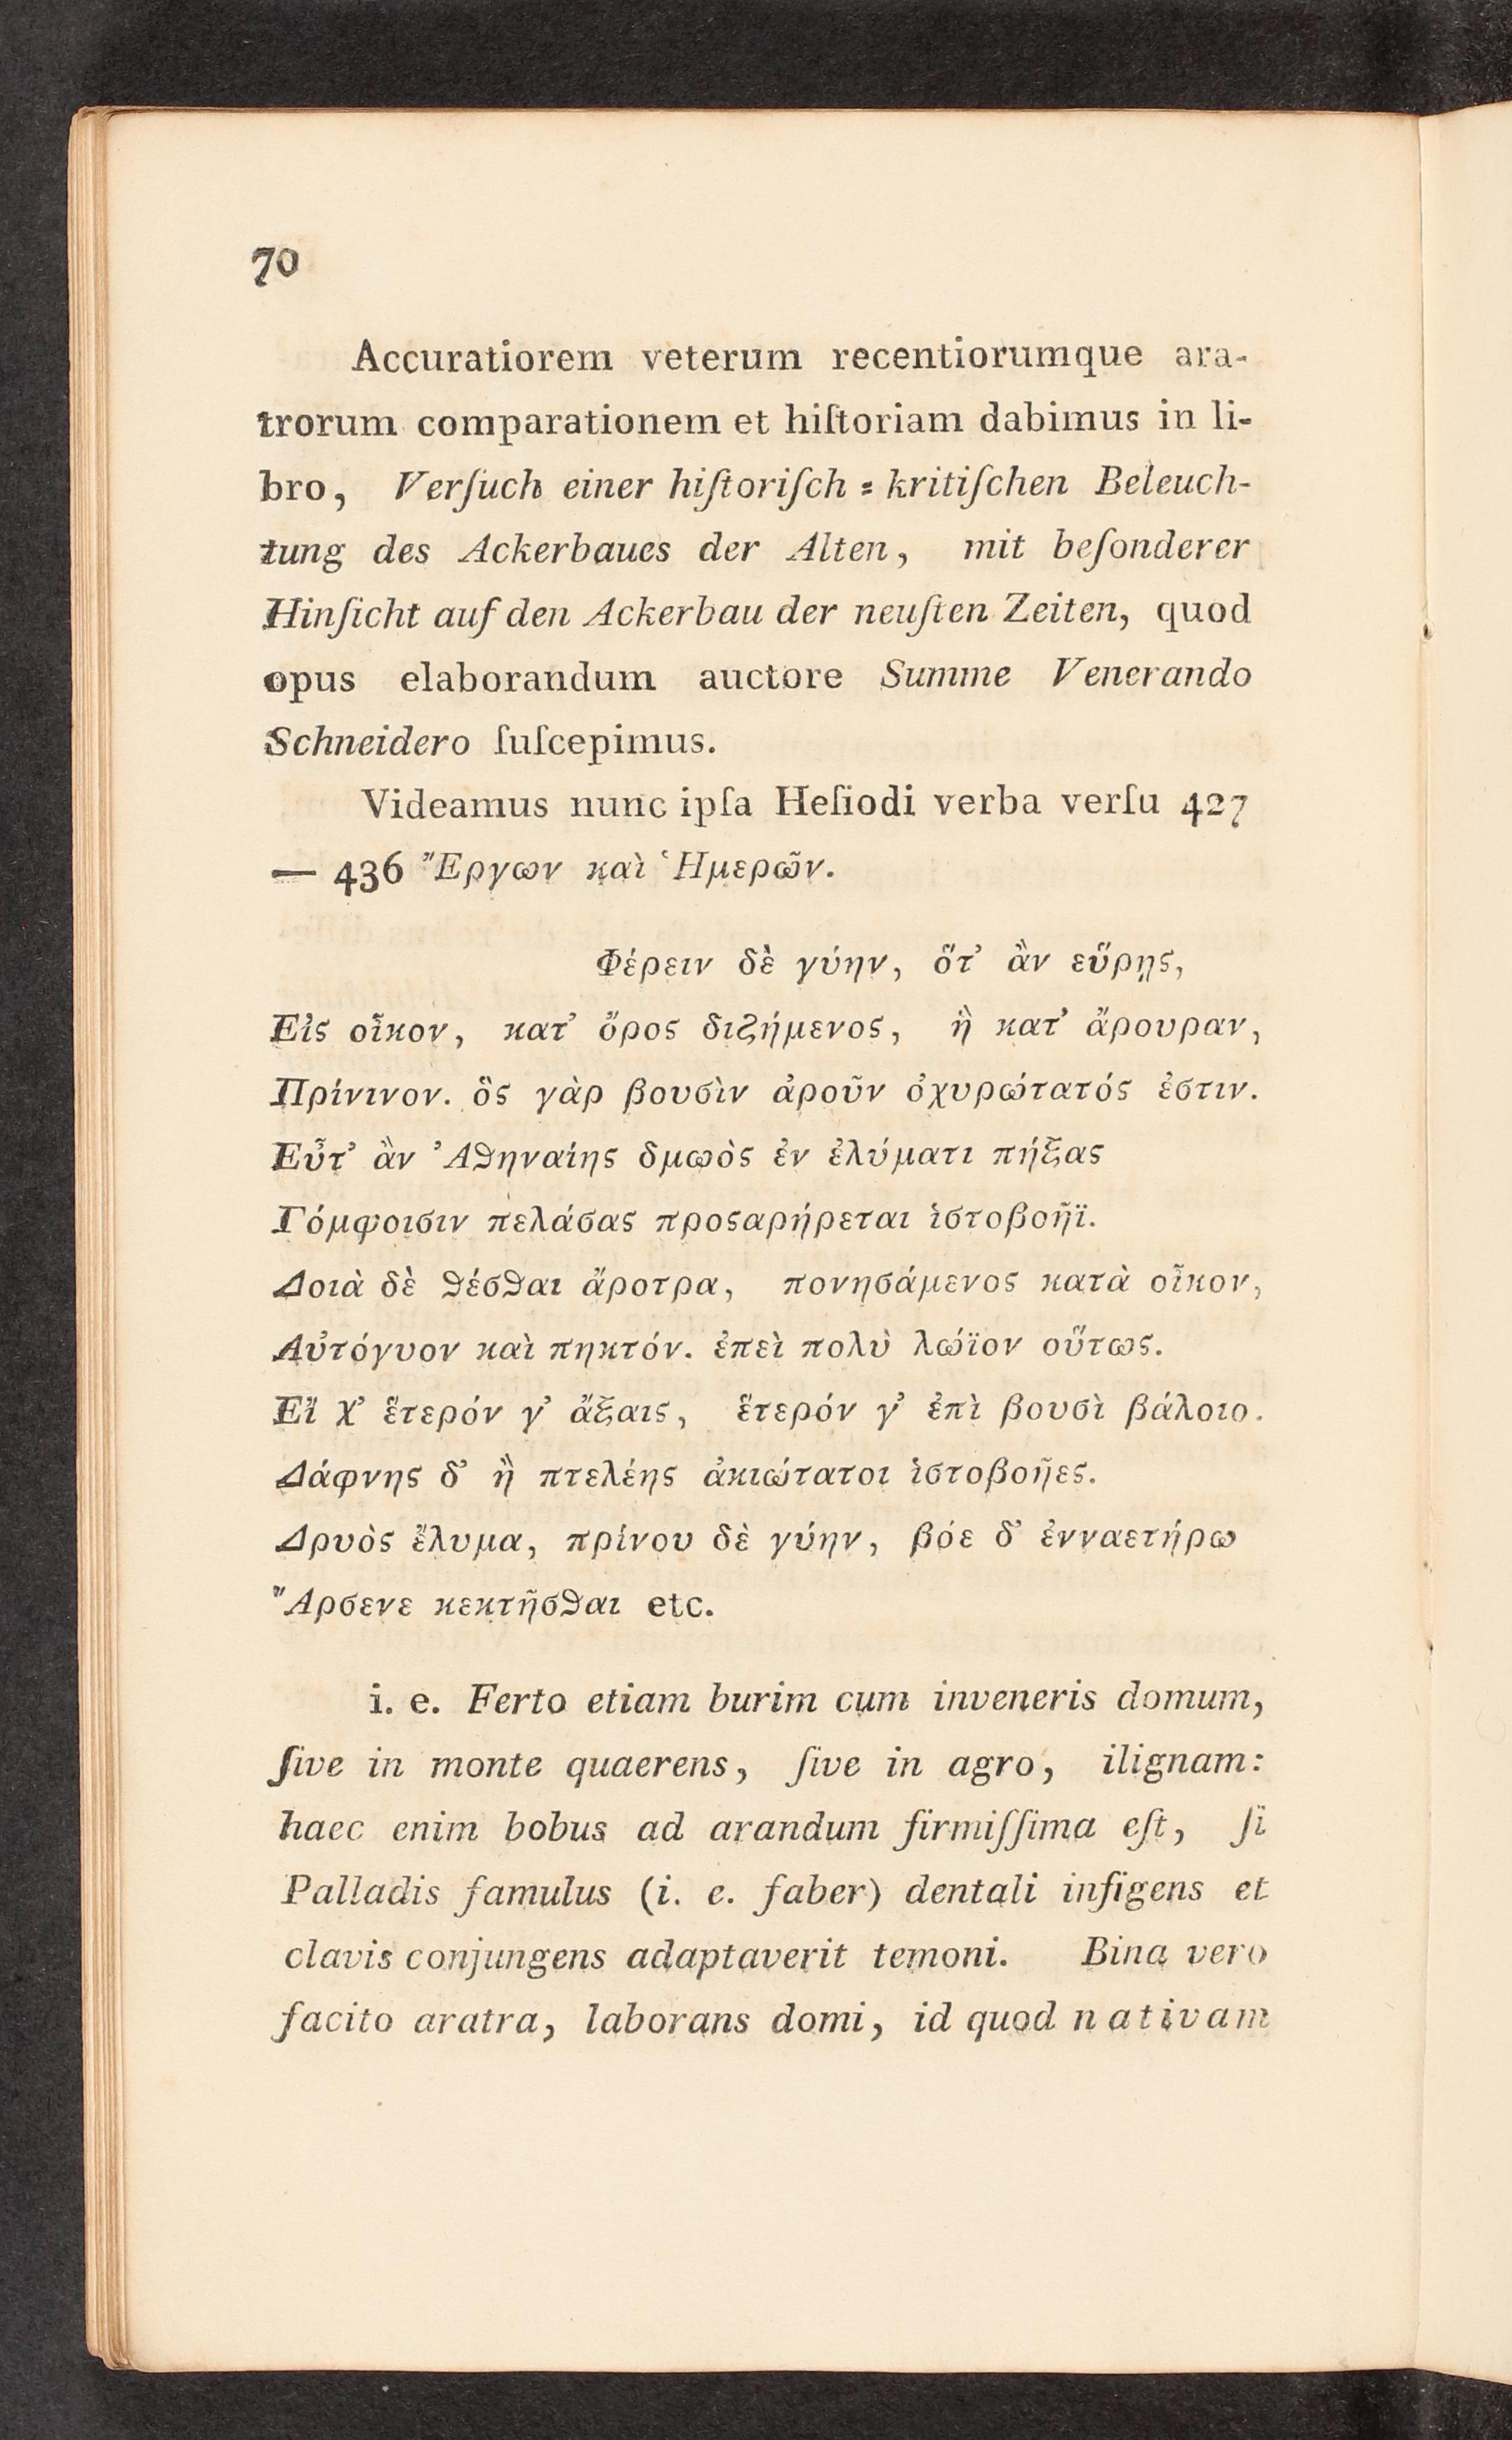 70
Accuratiorem veterum recentiorumque ara-
trorum comparationem et hiſtoriam dabimus in li-
bro, Verſuch einer hiſtoriſch⸗kritiſchen Beleuch-
tung des Ackerbaues der Alten, mit beſonderer
Hinſicht auf den Ackerbau der neuſten Zeiten, quod
opus elaborandum auctore Summe Venerando
Schneidero ſuſcepimus.
Videamus nunc ipſa Heſiodi verba verſu 427
— 436 Ἔργων καὶ Ἡμερῶν.
Φέρειν δὲ γύην, ὅτ’ ἂν εὕρῃς,
Εἰς οἶκον, κατ’ ὄρος διζήμενος, ἢ κατ’ ἄρουραν,
Πρίνινον. ὃς γὰρ βουσὶν ἀροῦν ὀχυρώτατός ἐστιν.
Εὖτ’ ἂν Ἀθηναίης δμωὸς ἐν ἐλύματι πήξας
Γόμφοισιν πελάσας προςαρήρεται ἱστοβοῆϊ.
Δοιὰ δὲ θέσθαι ἄροτρα, πονησάμενος κατὰ οἶκον,
Αὐτόγυον καὶ πηκτόν. ἐπεὶ πολὺ λώϊον οὕτως.
Εἴ χ’ ἕτερόν γ’ ἄξαις, ἕτερόν γ’ ἐπὶ βουσὶ βάλοιο.
Δάφνης δ’ ἢ πτελέης ἀκιώτατοι ἱστοβοῆες.
Δρυὸς ἔλυμα, πρίνου δὲ γύην, βόε δ’ ἐνναετήρω
Ἄρσενε κεκτῆσθαι etc.
i. e. Ferto etiam burim cum inveneris domum,
ſive in monte quaerens, ſive in agro, ilignam:
haec enim bobus ad arandum firmiſſima eſt, ſi
Palladis famulus (i. e. faber) dentali infigens et
clavis conjungens adaptaverit temoni. Bina vero
facito aratra, laborans domi, id quod nativam